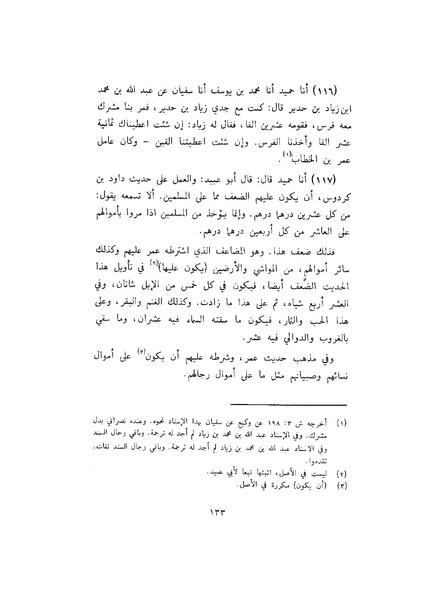 (١١٦) أنا حميد أنا محمد بن يوسف أنا سفيان عن عبد الله بن محمد
ابن زياد بن حدير قال: كنت مع جدي زياد بن حدير، فمر بنا مشرك
معه فرس، فقومه عشرين الفا، فقال له زياد: إن شئت اعطيناك ثمانية
عشر الفا وأخذنا الفرس. وإن شئت اعطيتنا الفين - وكان عامل
عمر بن الخطاب(١).
(١١٧) أنا حميد قال: قال أبو عبيد: والعمل على حديث داود بن
كردوس، أن يكون عليهم الضعف مما على المسلمين. ألا تسمعه يقول:
من كل عشرين درهما درهم. وإنما يؤخذ من المسلمين اذا مروا بأموالهم
على العاشر من كل أربعين درهما درهم.
فذلك ضعف هذا. وهو المضاعف الذي اشترطه عمر عليهم وكذلك
سائر أموالهم، من المواشي والأرضين (يكون عليها)(٢) في تأويل هذا
الحديث الضعف أيضا، فيكون في كل خمس من الإبل شاتان، وفي
العشر أربع شياه، ثم على هذا ما زادت. وكذلك الغنم والبقر، وعلى
هذا الحب والثمار، فيكون ما سقته السماء فيه عشران، وما سقي
بالغروب والدوالي فيه عشر.
وفي مذهب حديث عمر، وشرطه عليهم أن يكون(٣) على أموال
نسائهم وصبيانهم مثل ما على أموال رجالهم.
(١) أخرجه ش ٣: ١٩٨ عن وكيع عن سفيان بهذا الإسناد نحوه. وعنده نصراني بدل
مشرك. وفي الإسناد عبد الله بن محمد بن زياد لم أجد له ترجمة. وباقي رجال السند
وفي الاسناد عبد الله بن محمد بن زياد لم أجد له ترجمة. وباقي رجال السند ثقات،
تقدموا.
(٢) ليست في الأصل، اثبتها تبعا لأبي عبيد.
(٣) (أن يكون) مكررة في الأصل.
١٣٣